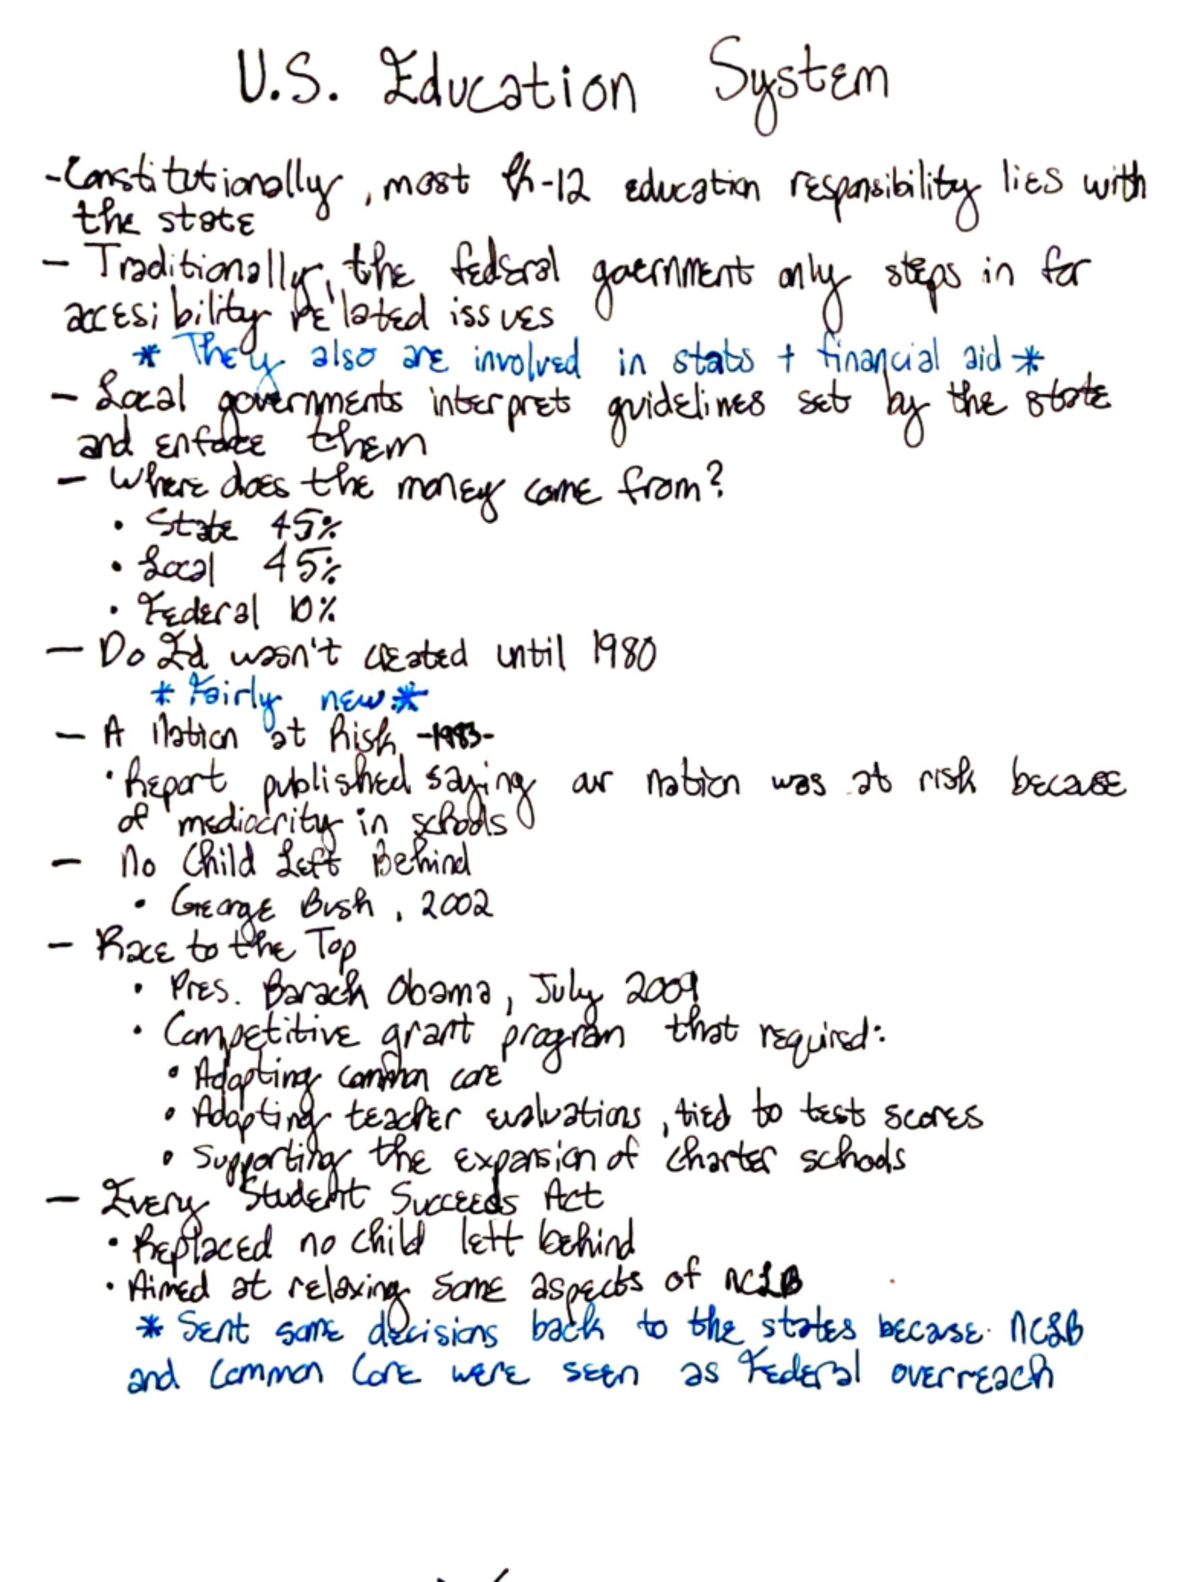 U.S. Education System
- Constitutionally, most K-12 education responsibility lies with
the state
- Traditionally, the federal government only steps in for
accesibility related issues
* They also are involved in stats + financial aid *
- Local governments interpret guidelines set by the state
and enforce them
- Where does the money come from?
• State 45%
• Local 45%
• Federal 10%
- Do Ed wasn't created until 1980
* Fairly new *
- A Nation at Risk -1983-
• Report published saying our nation was at risk because
of mediocrity in schools
- No Child Left Behind
• George Bush, 2002
- Race to the Top
• Pres. Barack Obama, July 2009
• Competitive grant program that required:
• Adopting common core
• Adopting teacher evaluations, tied to test scores
• Supporting the expansion of charter schools
- Every Student Succeeds Act
• Replaced no child left behind
• Aimed at relaxing some aspects of NCLB
* Sent some decisions back to the states becase NCLB
and Common Core were seen as Federal overreach